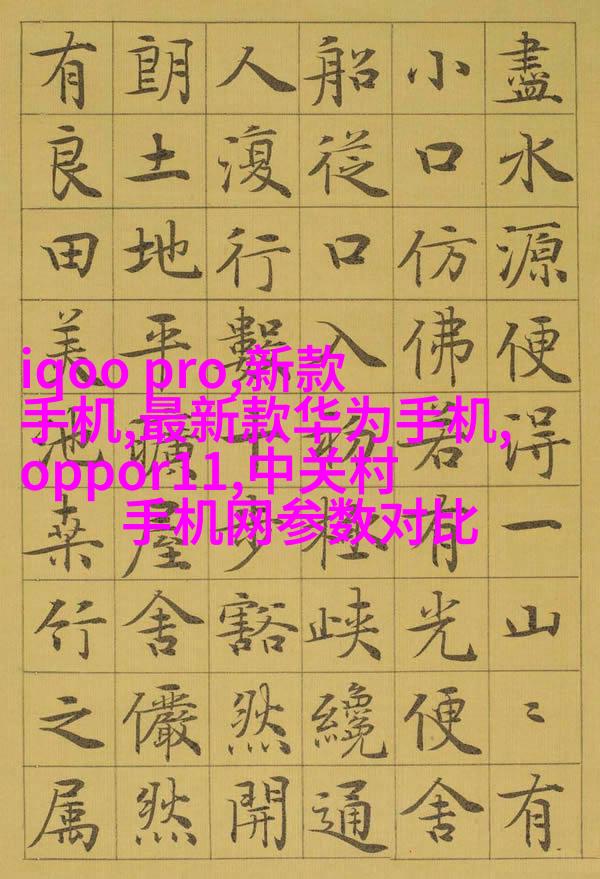 盡水源便得一山〻有
小口仿佛若有光便舍
船從口入初極峽纔通
人復行數十步豁然開
朗土地平曠屋舍儼然
有良田美池桑竹之属
iqoo pro,新款
手机,最新款华为手机,
oppor11,中关村
手机网参数对比